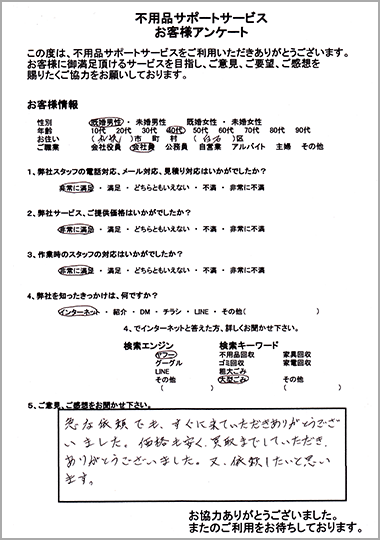 不用品サポートサービス
お客様アンケート
この度は、不用品サポートサービスをご利用いただきありがとうございます。
お客様に御満足頂けるサービスを目指し、ご意見、ご要望、ご感想を
賜りたくご協力をお願いしております。
お客様情報
性別 既婚男性 ・ 未婚男性 既婚女性 ・ 未婚女性
年齢 10代 20代 30代 40代 50代 60代 70代 80代 90代
お住い ( )市 町 村 ( )区
ご職業 会社役員 会社員 公務員 自営業 アルバイト 主婦 その他
1、弊社スタッフの電話対応、メール対応、見積り対応はいかがでしたか?
非常に満足 ・ 満足 ・ どちらともいえない ・ 不満 ・ 非常に不満
2、弊社サービス、ご提供価格はいかがでしたか?
非常に満足 ・ 満足 ・ どちらともいえない ・ 不満 ・ 非常に不満
3、作業時のスタッフの対応はいかがでしたか?
非常に満足 ・ 満足 ・ どちらともいえない ・ 不満 ・ 非常に不満
4、弊社を知ったきっかけは、何ですか?
インターネット ・ 紹介 ・ DM ・ チラシ ・ LINE ・ その他( )
4、でインターネットと答えた方、詳しくお聞かせ下さい。
検索エンジン 検索キーワード
ヤフー 不用品回収 家具回収
グーグル ゴミ回収 家電回収
LINE 粗大ごみ
その他 大型ごみ その他
( ) ( )
5、ご意見、ご感想をお聞かせ下さい。
急な依頼でも、すぐに来ていただきありがとうござい
ました。価格も安く、買取までしていただき、
ありがとうございました。又、依頼したいと思い
ます。
お協力ありがとうございました。
またのご利用をお待ちしております。